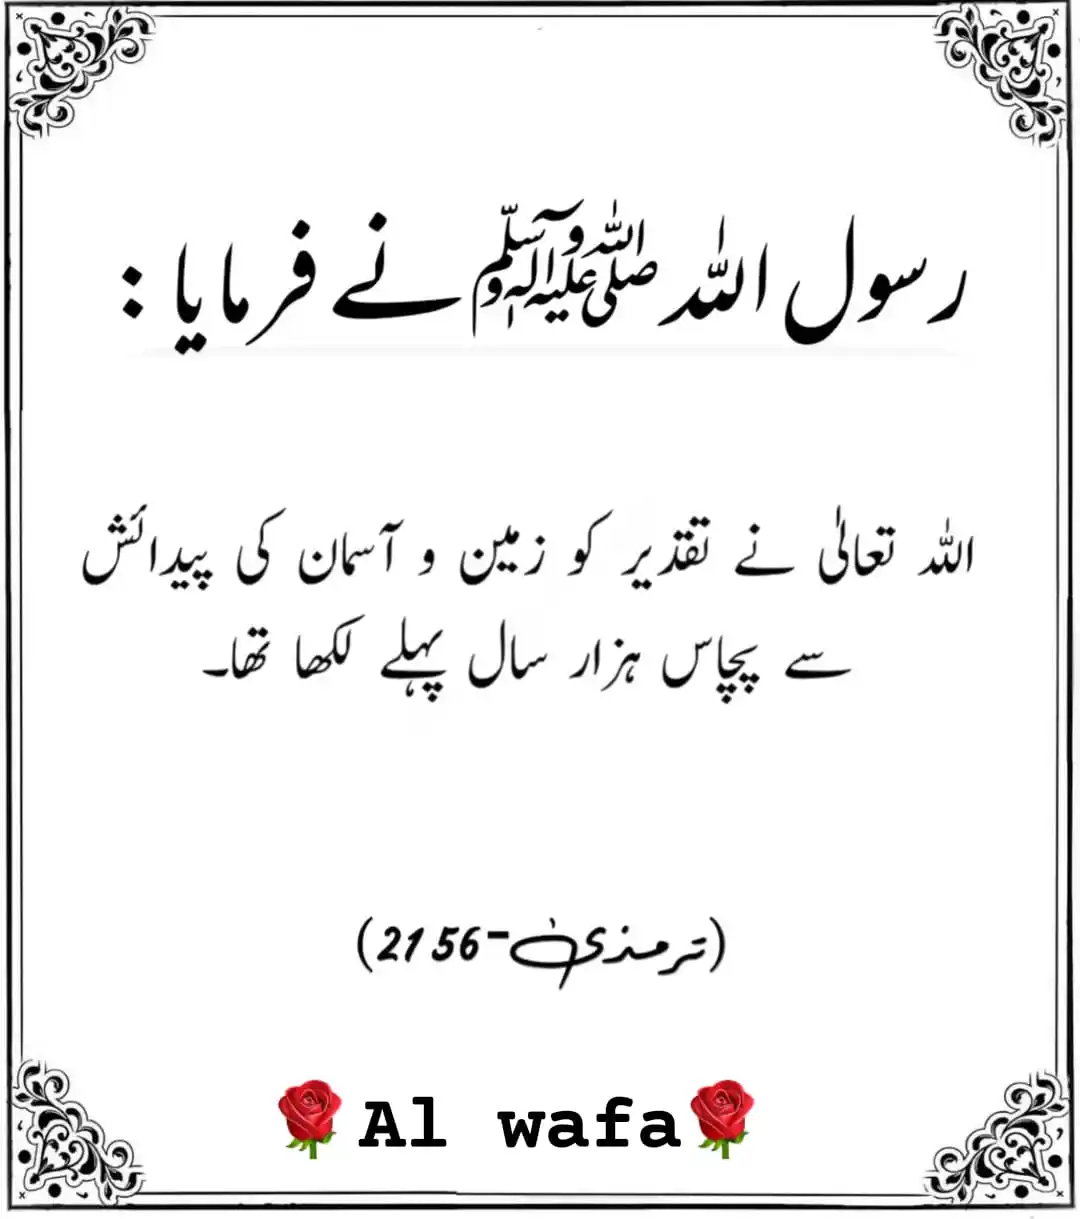 رسول اللہ ﷺ نے فرمایا :
اللہ تعالیٰ نے تقدیر کو زمین و آسمان کی پیدائش
سے پچاس ہزار سال پہلے لکھا تھا۔
(ترمذی-2156)
🌹Al wafa🌹